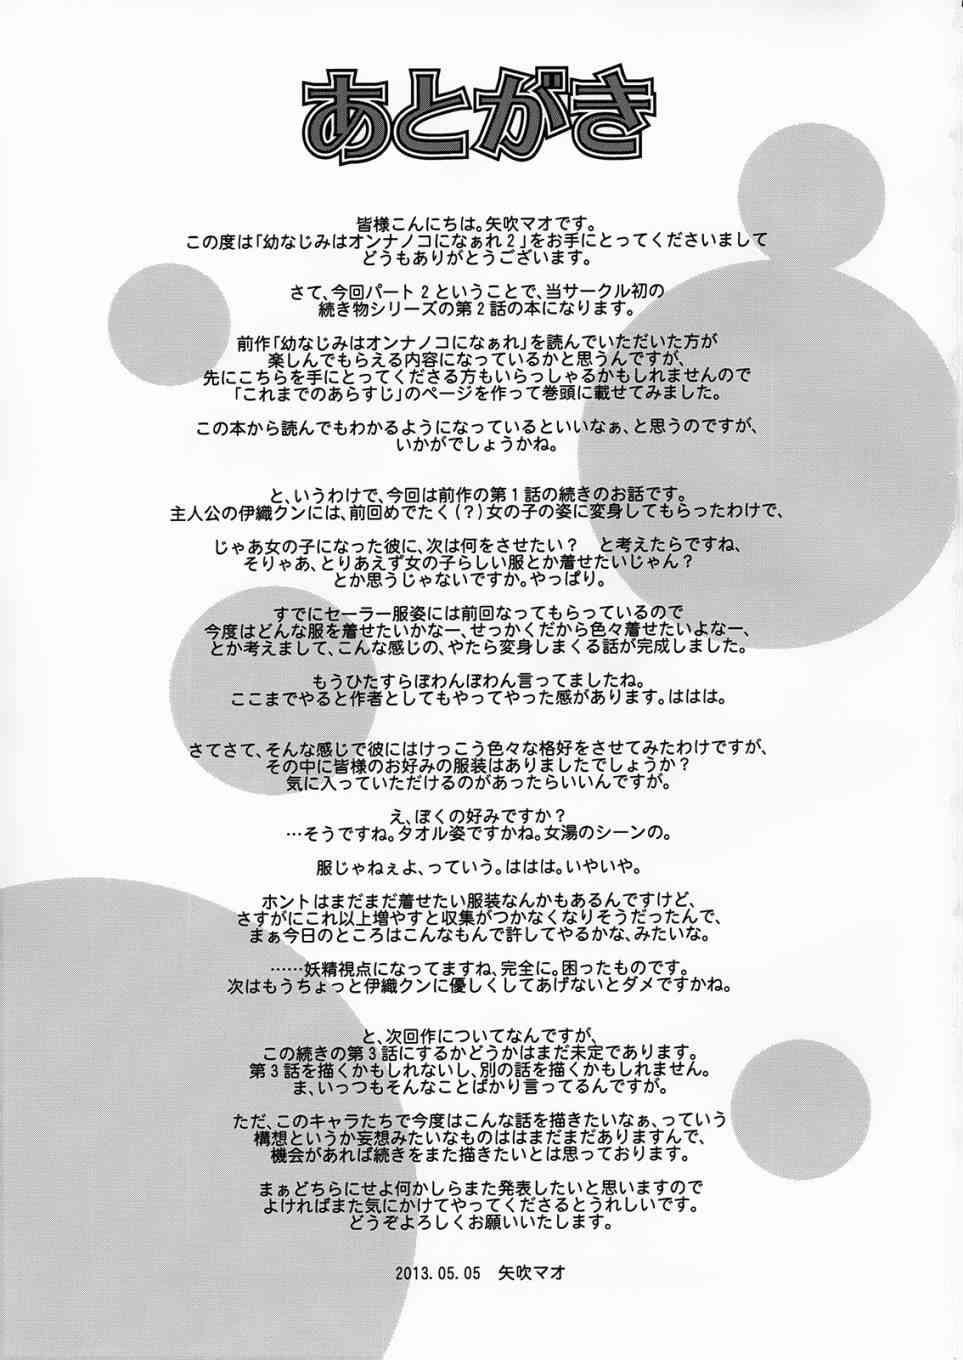 あとがき
皆様こんにちは。矢吹マオです。
この度は「幼なじみはオンナノコになぁれ2」をお手にとってくださいまして
どうもありがとうございます。
さて、今回パート2ということで、当サークル初の
続き物シリーズの第2話の本になります。
前作「幼なじみはオンナノコになぁれ」を読んでいただいた方が
楽しんでもらえる内容になっているかと思うんですが、
先にこちらを手にとってくださる方もいらっしゃるかもしれませんので
「これまでのあらすじ」のページを作って巻頭に載せてみました。
この本から読んでもわかるようになっているといいなぁ、と思うのですが、
いかがでしょうかね。
と、いうわけで、今回は前作の第1話の続きのお話です。
主人公の伊織クンには、前回めでたく(?)女の子の姿に変身してもらったわけで、
じゃあ女の子になった彼に、次は何をさせたい? と考えたらですね、
そりゃあ、とりあえず女の子らしい服とか着せたいじゃん?
とか思うじゃないですか。やっぱり。
すでにセーラー服姿には前回なってもらっているので
今度はどんな服を着せたいかなー、せっかくだから色々着せたいよなー、
とか考えまして、こんな感じの、やたら変身しまくる話が完成しました。
もうひたすらぽわんぽわん言ってましたね。
ここまでやると作者としてもやってやった感があります。ははは。
さてさて、そんな感じで彼にはけっこう色々な格好をさせてみたわけですが、
その中に皆様のお好みの服装はありましたでしょうか?
気に入っていただけるのがあったらいいんですが。
え、ぼくの好みですか?
…そうですね。タオル姿ですかね。女湯のシーンの。
服じゃねぇよ、っていう。ははは。いやいや。
ホントはまだまだ着せたい服装なんかもあるんですけど、
さすがにこれ以上増やすと収集がつかなくなりそうだったんで、
まぁ今日のところはこんなもんで許してやるかな、みたいな。
……妖精視点になってますね、完全に。困ったものです。
次はもうちょっと伊織クンに優しくしてあげないとダメですかね。
と、次回作についてなんですが、
この続きの第3話にするかどうかはまだ未定であります。
第3話を描くかもしれないし、別の話を描くかもしれません。
ま、いっつもそんなことばかり言ってるんですが。
ただ、このキャラたちで今度はこんな話を描きたいなぁ、っていう
構想というか妄想みたいなものははまだまだありますんで、
機会があれば続きをまた描きたいとは思っております。
まぁどちらにせよ何かしらまた発表したいと思いますので
よければまた気にかけてやってくださるとうれしいです。
どうぞよろしくお願いいたします。
2013.05.05 矢吹マオ